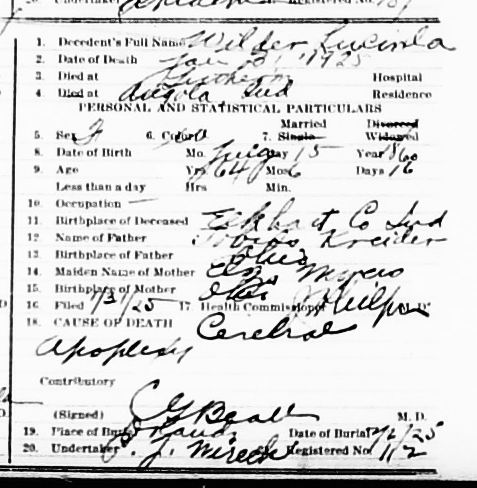 1. Decedent's Full Name Wilder, Lucinda
2. Date of Death Jan 31, 1925
3. Died at Lutheran Hospital
4. Died at Angola, Ind Residence
PERSONAL AND STATISTICAL PARTICULARS
Married Divorced
5. Sex F 6. Color 7. Single Widowed
8. Date of Birth Mo. Day 15 Year 1860
9. Age Yrs 64 Mos 6 Days 16
Less than a day Hrs Min.
10. Occupation —
11. Birthplace of Deceased Elkhart Co Ind
12. Name of Father Kreider
13. Birthplace of Father Ohio
14. Maiden Name of Mother Myers
15. Birthplace of Mother
16. Filed 1/31/25 17. Health Commissioner
18. CAUSE OF DEATH Cerebral
Apoplexy
Contributory
(Signed) Beall M. D.
19. Place of Burial Date of Burial 2/2/25
20. Undertaker Registered No. 112